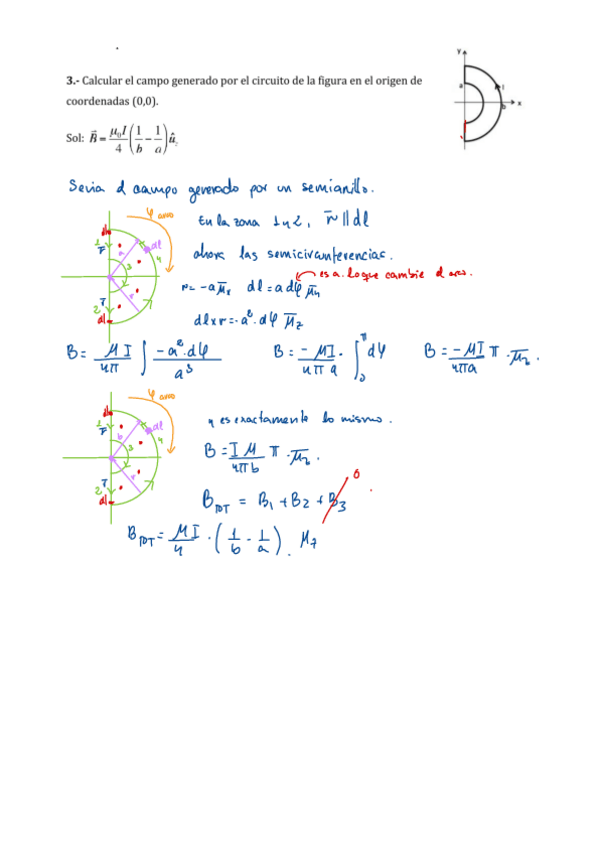 3.- Calcular el campo generado por el circuito de la figura en el origen de
coordenadas (0,0).
Sol: B⃗ = μ₀I/4 (1/b − 1/a) û_z
y
a
I
b
x
Seria el campo generado por un semianillo.
φ arco
En la zona 1 y 2, r̄ || dl
ahora las semicircunferencias.
es a. lo que cambie el arco.
r = -a μ̄r dl = a dφ μ̄φ
dl x r = -a² . dφ μ̄z
B = μI/4π ∫ -a² . dφ / a³
B = -μI/4πa . ∫₀^π dφ
B = -μI/4πa π . μ̄z .
φ arco
y es exactamente lo mismo.
B = Iμ/4πb π . μ̄z .
B_TOT = B₁ + B₂ + B₃ 0
B_TOT = μI/4 . (1/b - 1/a) . μz